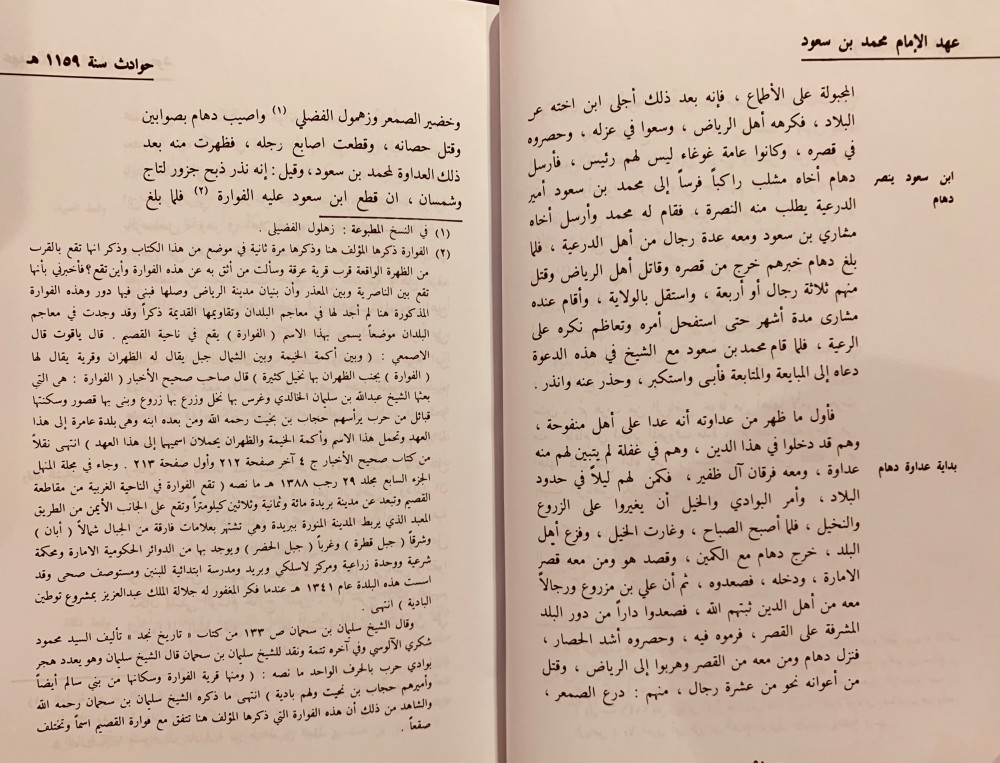 عهد الإمام محمد بن سعود
المجبولة على الأطماع ، فإنه بعد ذلك أجلى ابن اخته عن
البلاد ، فكرهه أهل الرياض ، وسعوا في عزله ، وحصروه
في قصره ، وكانوا عامة غوغاء ليس لهم رئيس ، فأرسل
دهام أخاه مشلب راكباً فرساً إلى محمد بن سعود أمير
الدرعية يطلب منه النصرة ، فقام له محمد وأرسل أخاه
مشاري بن سعود ومعه عدة رجال من أهل الدرعية ، فلما
بلغ دهام خبرهم خرج من قصره وقاتل أهل الرياض وقتل
منهم ثلاثة رجال أو أربعة ، واستقل بالولاية ، وأقام عنده
مشارى مدة أشهر حتى استفحل أمره وتعاظم نكره على
الرعية ، فلما قام محمد بن سعود مع الشيخ في هذه الدعوة
دعاه إلى المبايعة والمتابعة فأبى واستكبر ، وحذر عنه وانذر .
ابن سعود ينصر
دهام
فأول ما ظهر من عداوته أنه عدا على أهل منفوحة ،
وهم قد دخلوا في هذا الدين ، وهم في غفلة لم يتبين لهم منه
عداوة ، ومعه فرقان آل ظفير ، فكمن لهم ليلاً في حدود
البلاد ، وأمر البوادي والخيل أن يغيروا على الزروع
والنخيل ، فلما أصبح الصباح ، وغارت الخيل ، وفزع أهل
البلد ، خرج دهام مع الكمين ، وقصد هو ومن معه قصر
الامارة ، ودخله ، فصعدوه ، ثم أن علي بن مزروع ورجالاً
معه من أهل الدين ثبتهم الله ، فصعدوا داراً من دور البلد
المشرفة على القصر ، فرموه فيه ، وحصروه أشد الحصار ،
فنزل دهام ومن معه من القصر وهربوا إلى الرياض ، وقتل
من أعوانه نحو من عشرة رجال ، منهم : درع الصمعر ،
بداية عداوة دهام
حوادث سنة ١١٥٩ هـ
وخضير الصمعر وزهمول الفضلي (١) واصيب دهام بصوابين
وقتل حصانه ، وقطعت اصابع رجله ، فظهرت منه بعد
ذلك العداوة لمحمد بن سعود ، وقيل : إنه نذر ذبح جزور لتاج
وشمسان ، ان قطع ابن سعود عليه الفوارة (٢) فلما بلغ
(١) في النسخ المطبوعة : زهلول الفضيلى .
(٢) الفوارة ذكرها المؤلف هنا وذكرها مرة ثانية في موضع من هذا الكتاب وذكر انها تقع بالقرب
من الظهرة الواقعة قرب قرية عرقة وسألت من أثق به عن هذه الفوارة وأين تقع؟ فأخبرني بأنها
تقع بين الناصرية وبين المعذر وأن بنيان مدينة الرياض وصلها فبنى فيها دور وهذه الفوارة
المذكورة هنا لم أجد لها في معاجم البلدان وتقاويمها القديمة ذكراً وقد وجدت في معاجم
البلدان موضعاً يسمى بهذا الاسم ( الفوارة ) يقع في ناحية القصيم . قال ياقوت قال
الاصمعي : ( وبين أكمة الخيمة وبين الشمال جبل يقال له الظهران وقرية يقال لها
( الفوارة ) بجنب الظهران بها نخيل كثيرة ) قال صاحب صحيح الأخبار ( الفوارة : هى التي
بعثها الشيخ عبدالله بن سليمان الخالدي وغرس بها نخل وزرع بها زروع وبنى بها قصور وسكنتها
قبائل من حرب يرأسهم حجاب بن بخيت رحمه الله ومن بعده ابنه وهى بلدة عامرة إلى هذا
العهد وتحمل هذا الاسم وأكمة الخيمة والظهران يحملان اسميهما إلى هذا العهد ) انتهى نقلاً
من كتاب صحيح الأخبار ج ٤ آخر صفحة ٢١٢ وأول صفحة ٢١٣ . وجاء في مجلة المنهل
الجزء السابع مجلد ٢٩ رجب ١٣٨٨ هـ ما نصه ( تقع الفوارة في الناحية الغربية من مقاطعة
القصيم وتبعد عن مدينة بريدة مائة وثمانية وثلاثين كيلومتراً وتقع على الجانب الأيمن من الطريق
المعبد الذي يربط المدينة المنورة ببريدة وهى تشتهر بعلامات فارقة من الجبال شمالاً ( أبان )
وشرقاً ( جبل قطرة ) وغرباً ( جبل الحضر ) ويوجد بها من الدوائر الحكومية الامارة ومحكمة
شرعية ووحدة زراعية ومركز لاسلكي وبريد ومدرسة ابتدائية للبنين ومستوصف صحى وقد
اسست هذه البلدة عام ١٣٤١ هـ عندما فكر المغفور له جلالة الملك عبدالعزيز بمشروع توطين
البادية ) انتهى .
وقال الشيخ سليمان بن سحمان ص ١٣٣ من كتاب « تاريخ نجد » تأليف السيد محمود
شكري الآلوسي وفي آخره تتمة ونقد للشيخ سليمان بن سحمان قال الشيخ سليمان وهو يعدد هجر
بوادي حرب بالحرف الواحد ما نصه : ( ومنها قرية الفوارة وسكانها من بني سالم أيضاً
وأميرهم حجاب بن نحيت ولهم بادية ) انتهى ما ذكره الشيخ سليمان بن سحمان رحمه الله
والشاهد من ذلك أن هذه الفوارة التي ذكرها المؤلف هنا تتفق مع فوارة القصيم اسماً وتختلف
صقعاً .